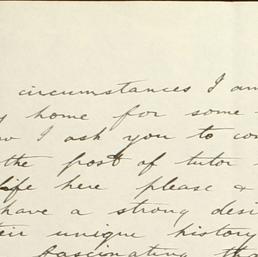 circumstances I am
home for some
I ask you to
the post of tutor
life here please &
have a strong
unique history
fascinating